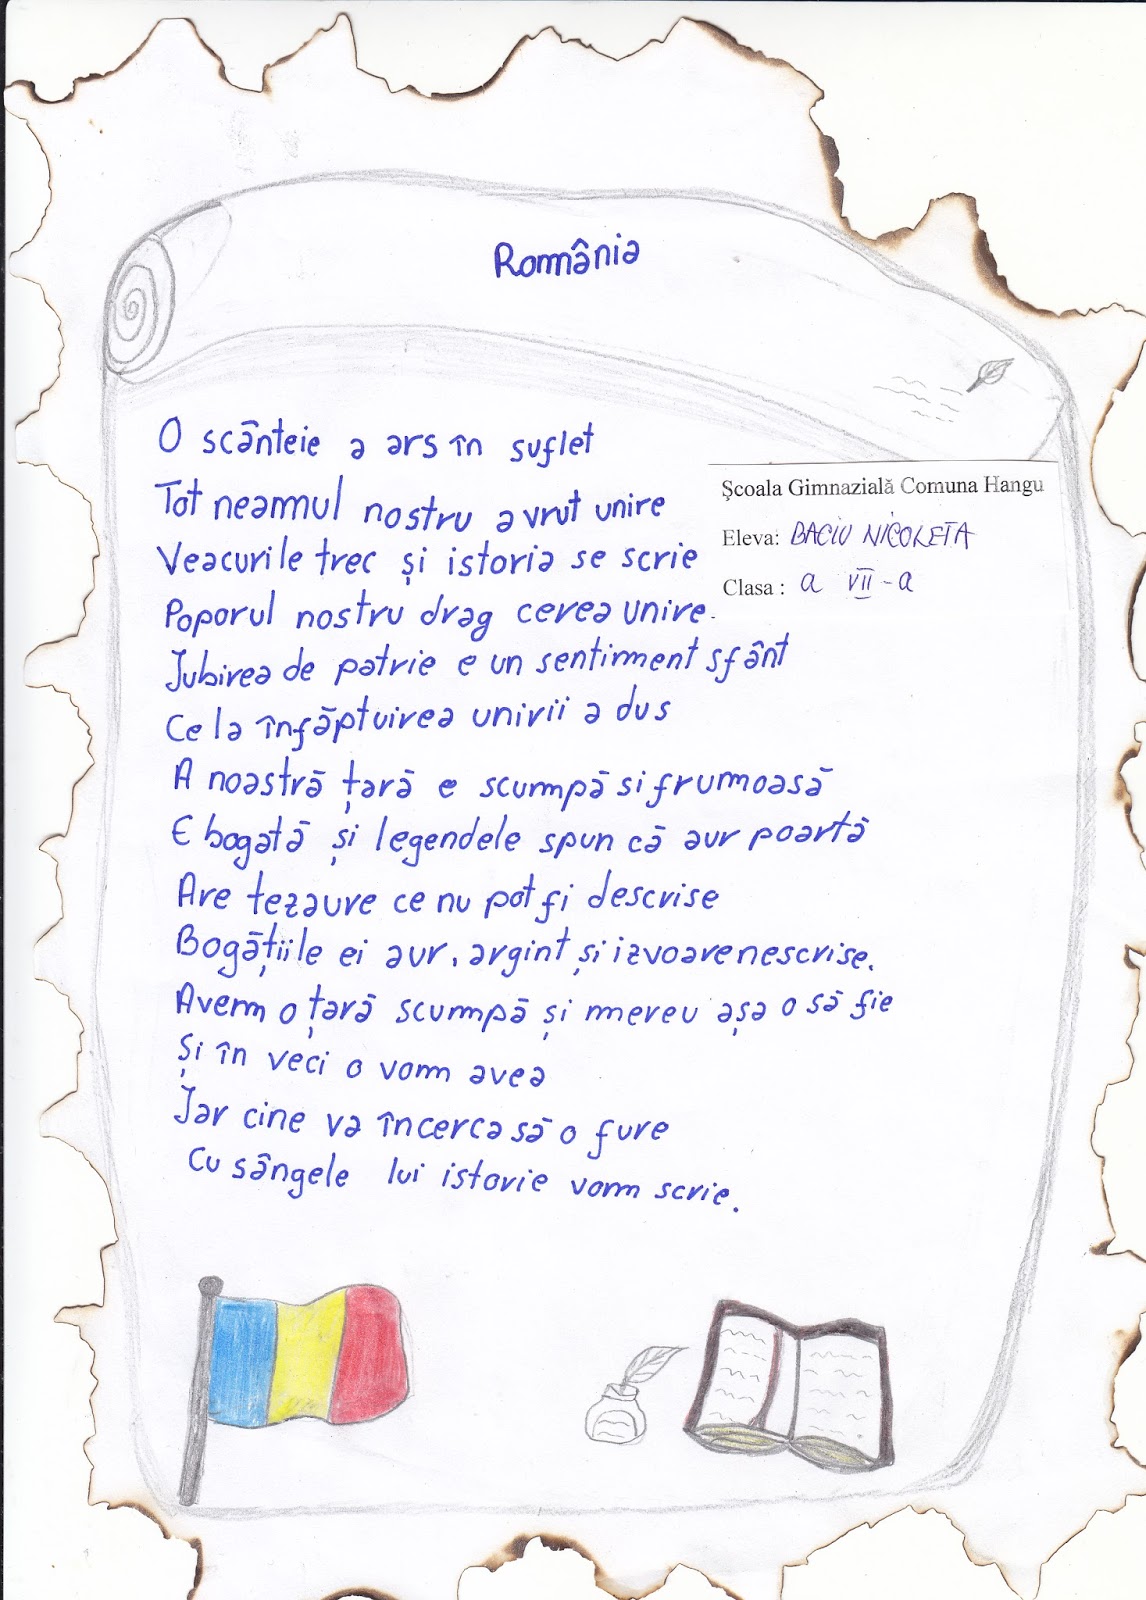 România
O scânteie a ars în suflet
Tot neamul nostru a vrut unire
Veacurile trec și istoria se scrie
Poporul nostru drag cerea unire.
Iubirea de patrie e un sentiment sfânt
Ce la înfăptuirea unirii a dus
A noastră țară e scumpă si frumoasă
E bogată și legendele spun că aur poartă
Are tezaure ce nu pot fi descrise
Bogățiile ei aur, argint și izvoare nescrise.
Avem o țară scumpă și mereu așa o să fie
Și în veci o vom avea
Iar cine va încerca să o fure
Cu sângele lui istorie vom scrie.
Şcoala Gimnazială Comuna Hangu
Eleva: BACIU NICOLETA
Clasa : a VII-a